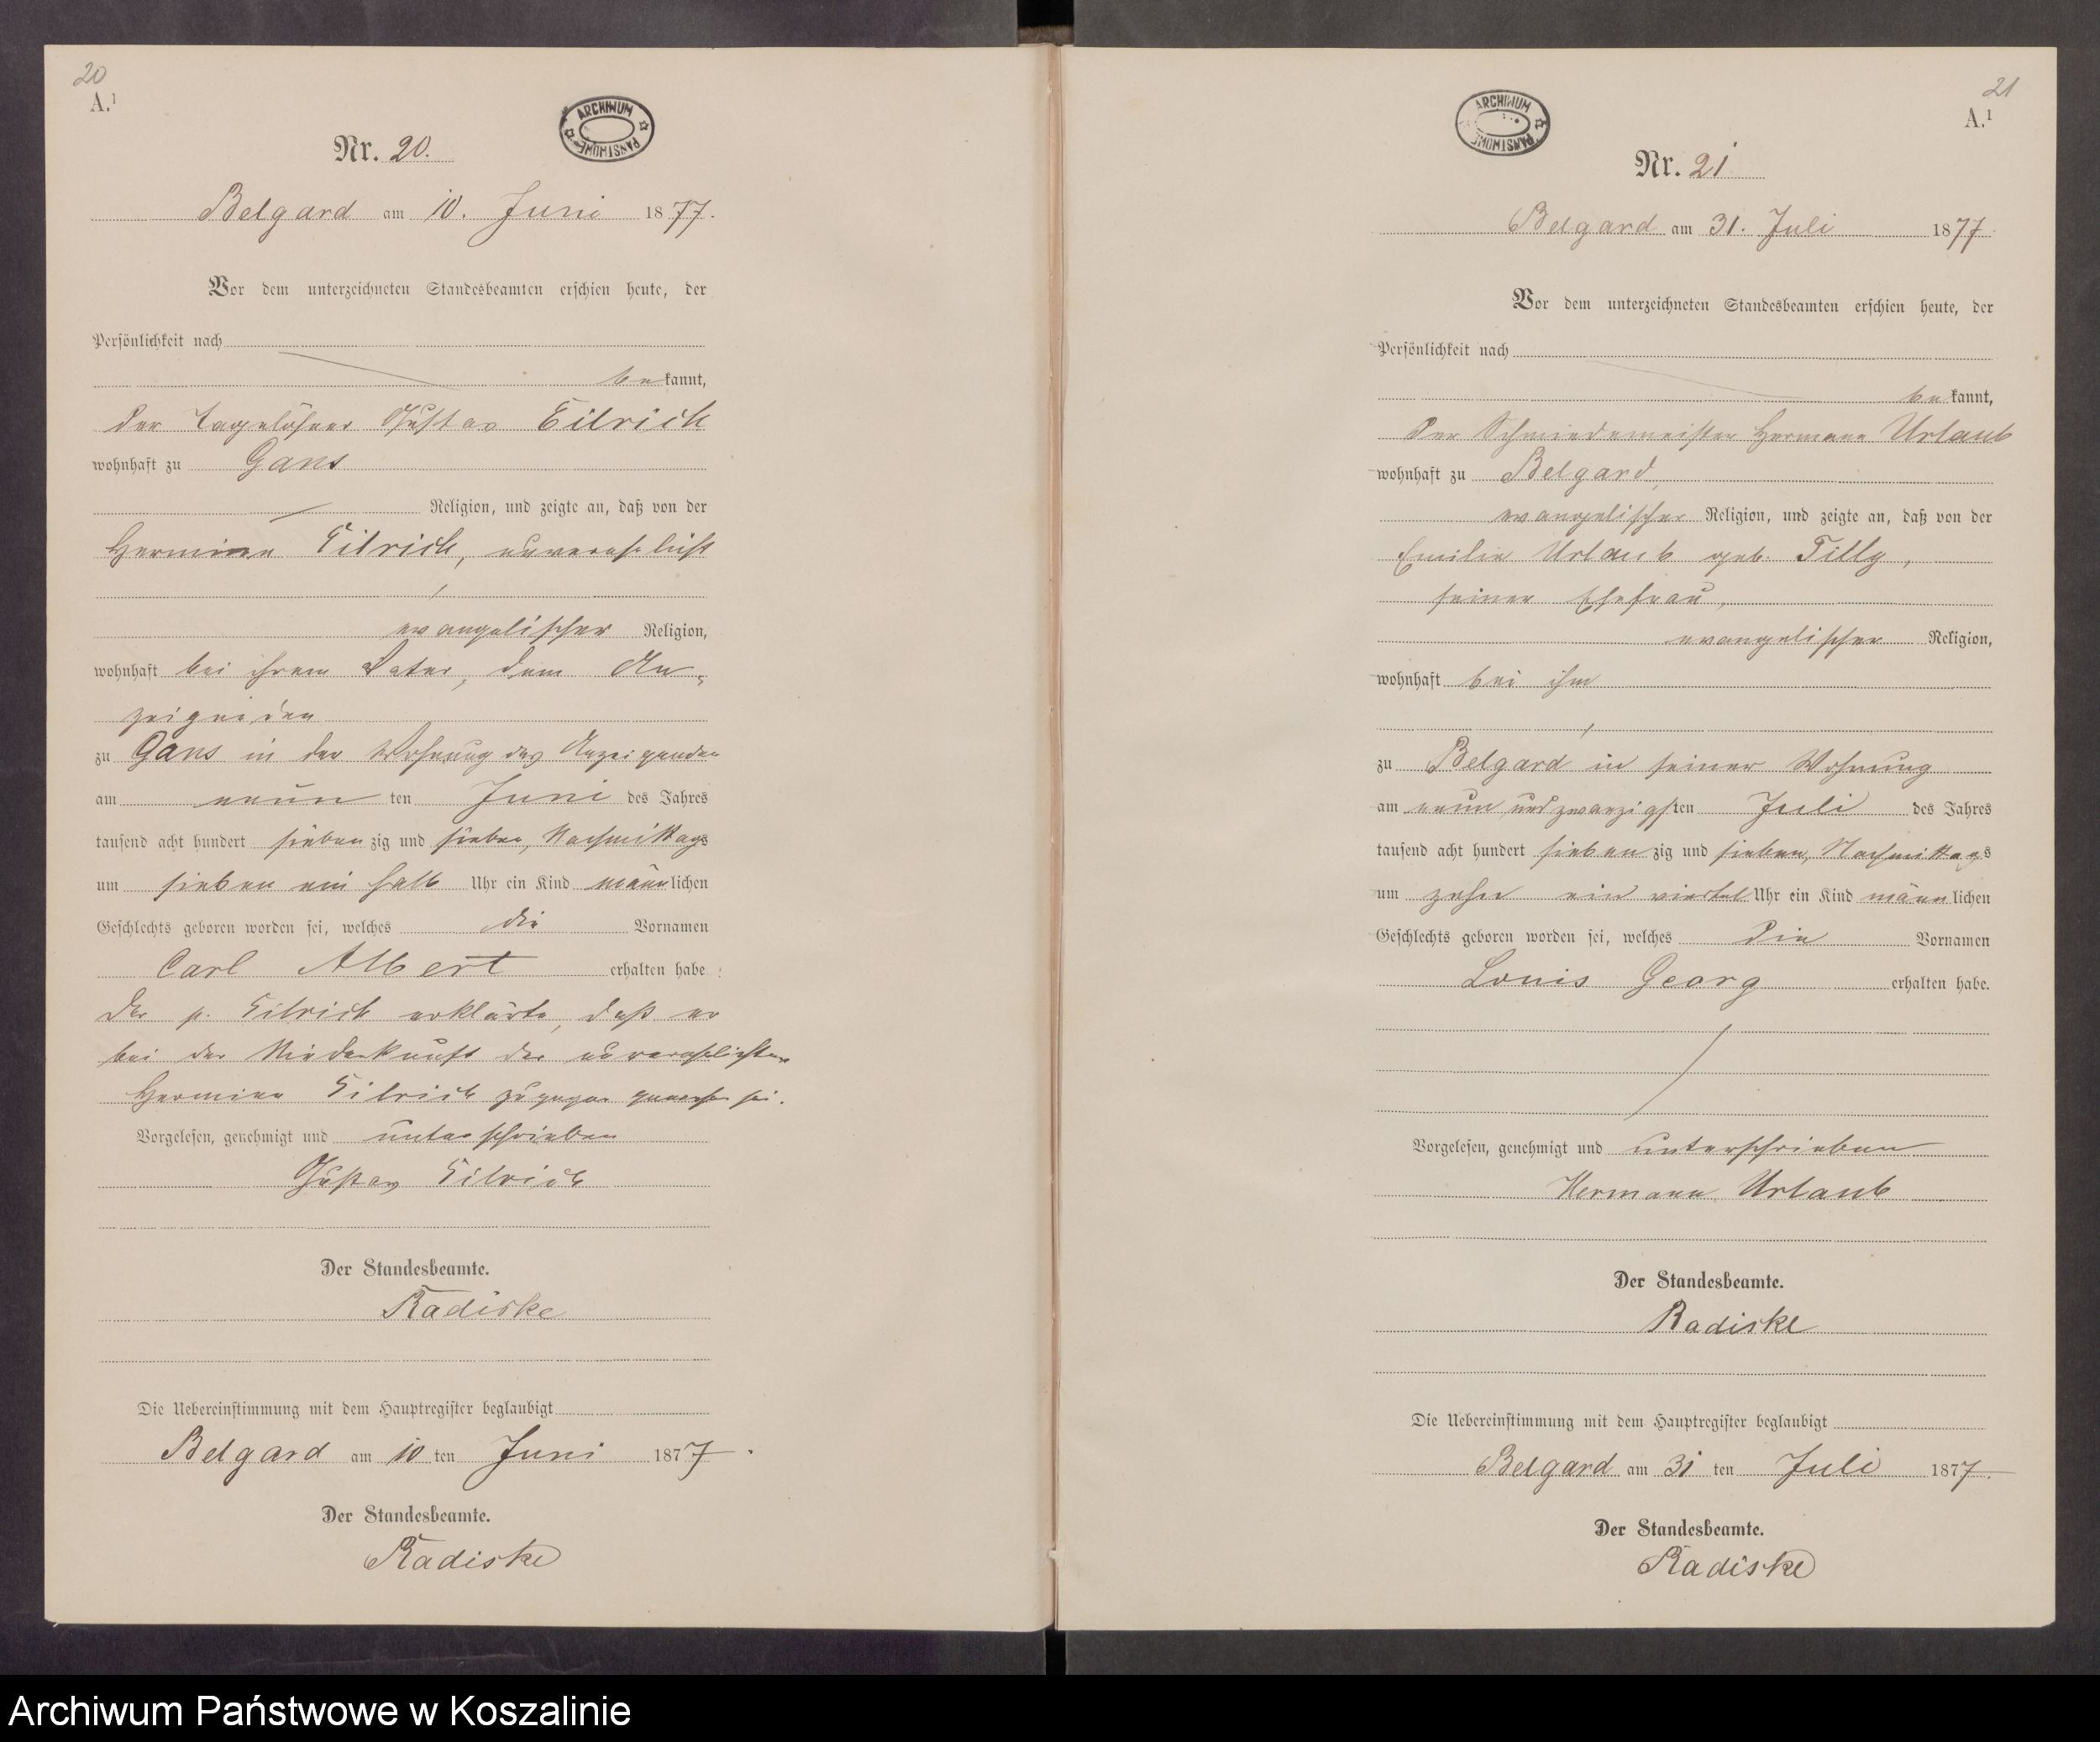 20
A.¹
ARCHIWUM PAŃSTWOWE
Nr. 20.
Belgard am 10. Juni 1877.
Vor dem unterzeichneten Standesbeamten erschien heute, der
Persönlichkeit nach
bekannt,
der Tagelöhner Gustav Eilrich
wohnhaft zu Gans
Religion, und zeigte an, daß von der
Hermine Eilrich, unverehelicht
evangelischer Religion,
wohnhaft bei ihrem Vater, dem An-
zeigenden
zu Gans in der Wohnung des Anzeigenden
am neun ten Juni des Jahres
tausend acht hundert siebenzig und sieben, Nachmittags
um sieben ein halb Uhr ein Kind männlichen
Geschlechts geboren worden sei, welches die Vornamen
Carl Albert erhalten habe.
Der p. Eilrich erklärte, daß er
bei der Niederkunft der unverehelichten
Hermine Eilrich zugegen gewesen sei.
Vorgelesen, genehmigt und unterschrieben
Gustav Eilrich
Der Standesbeamte.
Radiske
Die Uebereinstimmung mit dem Hauptregister beglaubigt
Belgard am 10 ten Juni 1877.
Der Standesbeamte.
Radiske
21
A.¹
ARCHIWUM PAŃSTWOWE
Nr. 21
Belgard am 31. Juli 1877.
Vor dem unterzeichneten Standesbeamten erschien heute, der
Persönlichkeit nach
bekannt,
der Schmiedemeister Hermann Urlaub
wohnhaft zu Belgard,
evangelischer Religion, und zeigte an, daß von der
Emilie Urlaub geb. Tilly,
seiner Ehefrau,
evangelischer Religion,
wohnhaft bei ihm
zu Belgard in seiner Wohnung
am neun und zwanzigsten Juli des Jahres
tausend acht hundert siebenzig und sieben, Nachmittags
um zehn ein viertel Uhr ein Kind männlichen
Geschlechts geboren worden sei, welches die Vornamen
Louis Georg erhalten habe.
Vorgelesen, genehmigt und unterschrieben
Hermann Urlaub
Der Standesbeamte.
Radiske
Die Uebereinstimmung mit dem Hauptregister beglaubigt
Belgard am 31 ten Juli 1877.
Der Standesbeamte.
Radiske
Archiwum Państwowe w Koszalinie